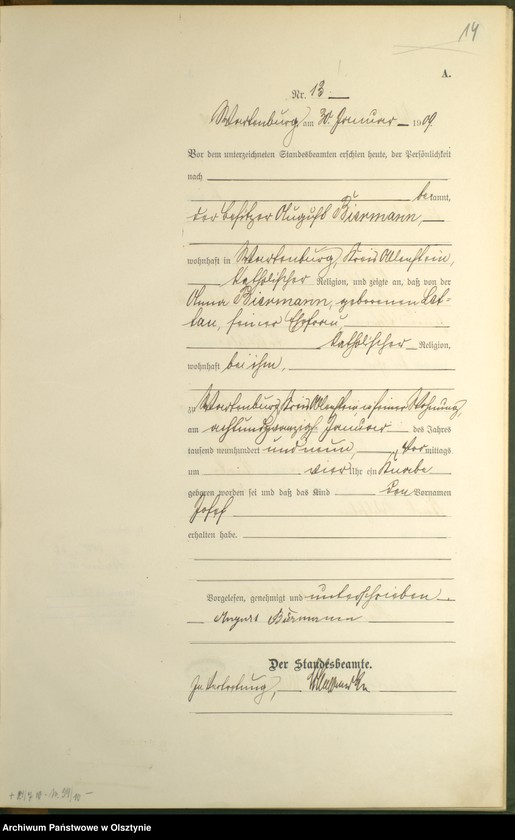 14
A.
Nr. 13
Wartenburg am 30. Januar 1909
Vor dem unterzeichneten Standesbeamten erschien heute, der Persönlichkeit
nach
bekannt,
der Besitzer August Biermann,
wohnhaft in Wartenburg, Kreis Allenstein,
katholischer Religion, und zeigte an, daß von der
Anna Biermann, geborenen
seiner Ehefrau,
katholischer Religion,
wohnhaft bei ihm,
zu Wartenburg Kreis Allenstein, in seiner Wohnung,
am achtundzwanzigsten Januar des Jahres
tausend neunhundert und neun, Vormittags
um vier Uhr ein Knabe
geboren worden sei und daß das Kind den Vornamen
Josef
erhalten habe.
Vorgelesen, genehmigt und unterschrieben.
August Biermann
Der Standesbeamte.
In Vertretung,
Archiwum Państwowe w Olsztynie